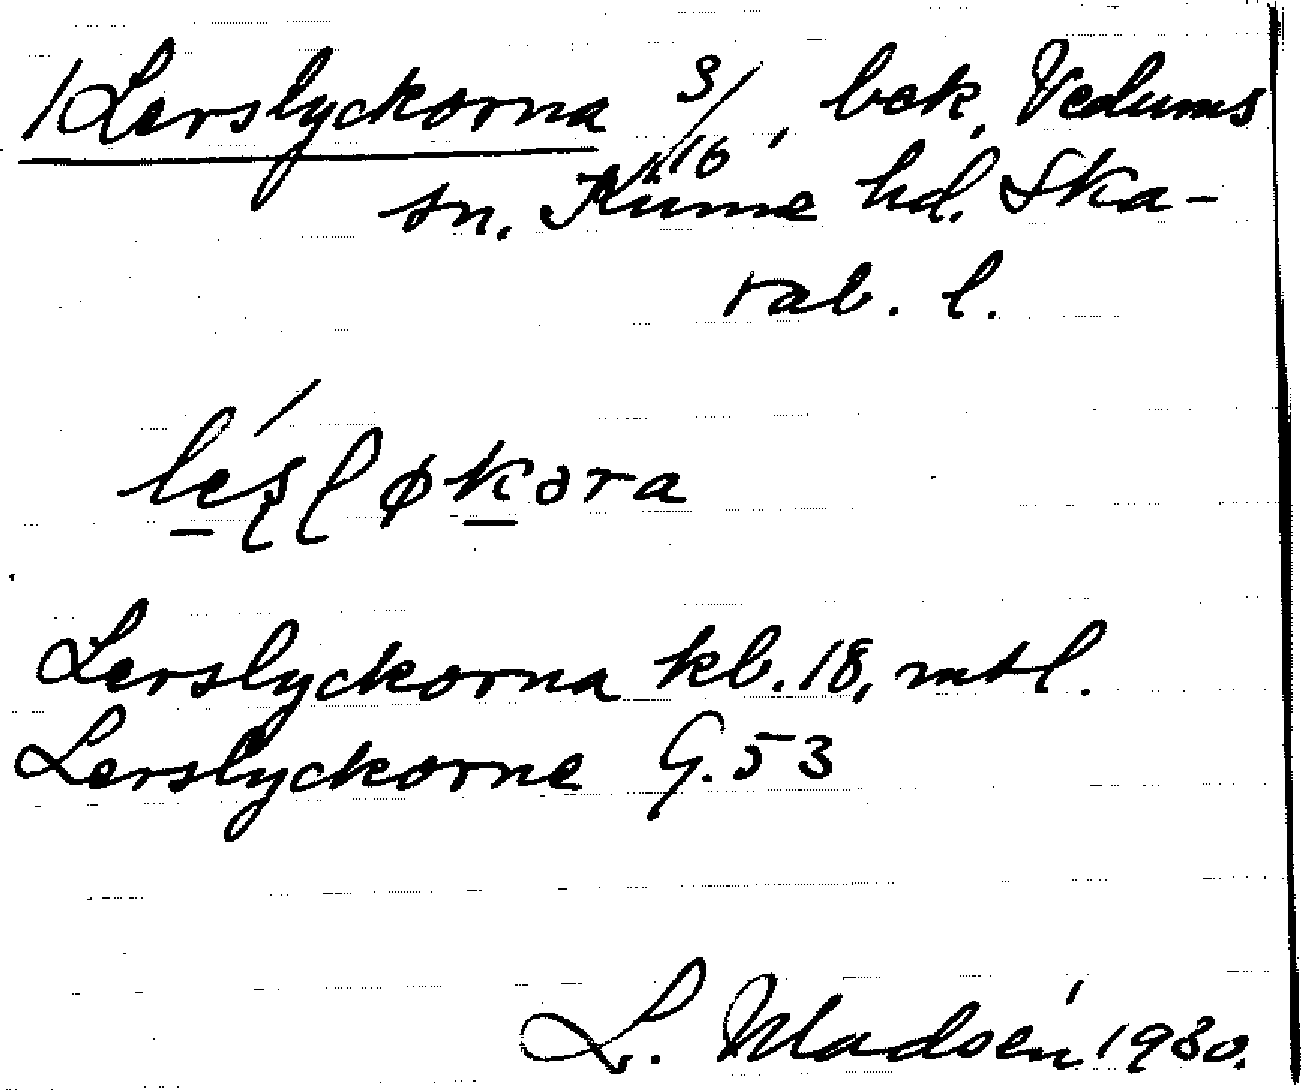 /Lerslyckorna 3/16, bek, Vedums
sn. Kinne hd. Ska-
rab. l.
Lerslyckorna kb. 18, mtl.
Lerslyckorne G. 53
L. Madsén 1930.